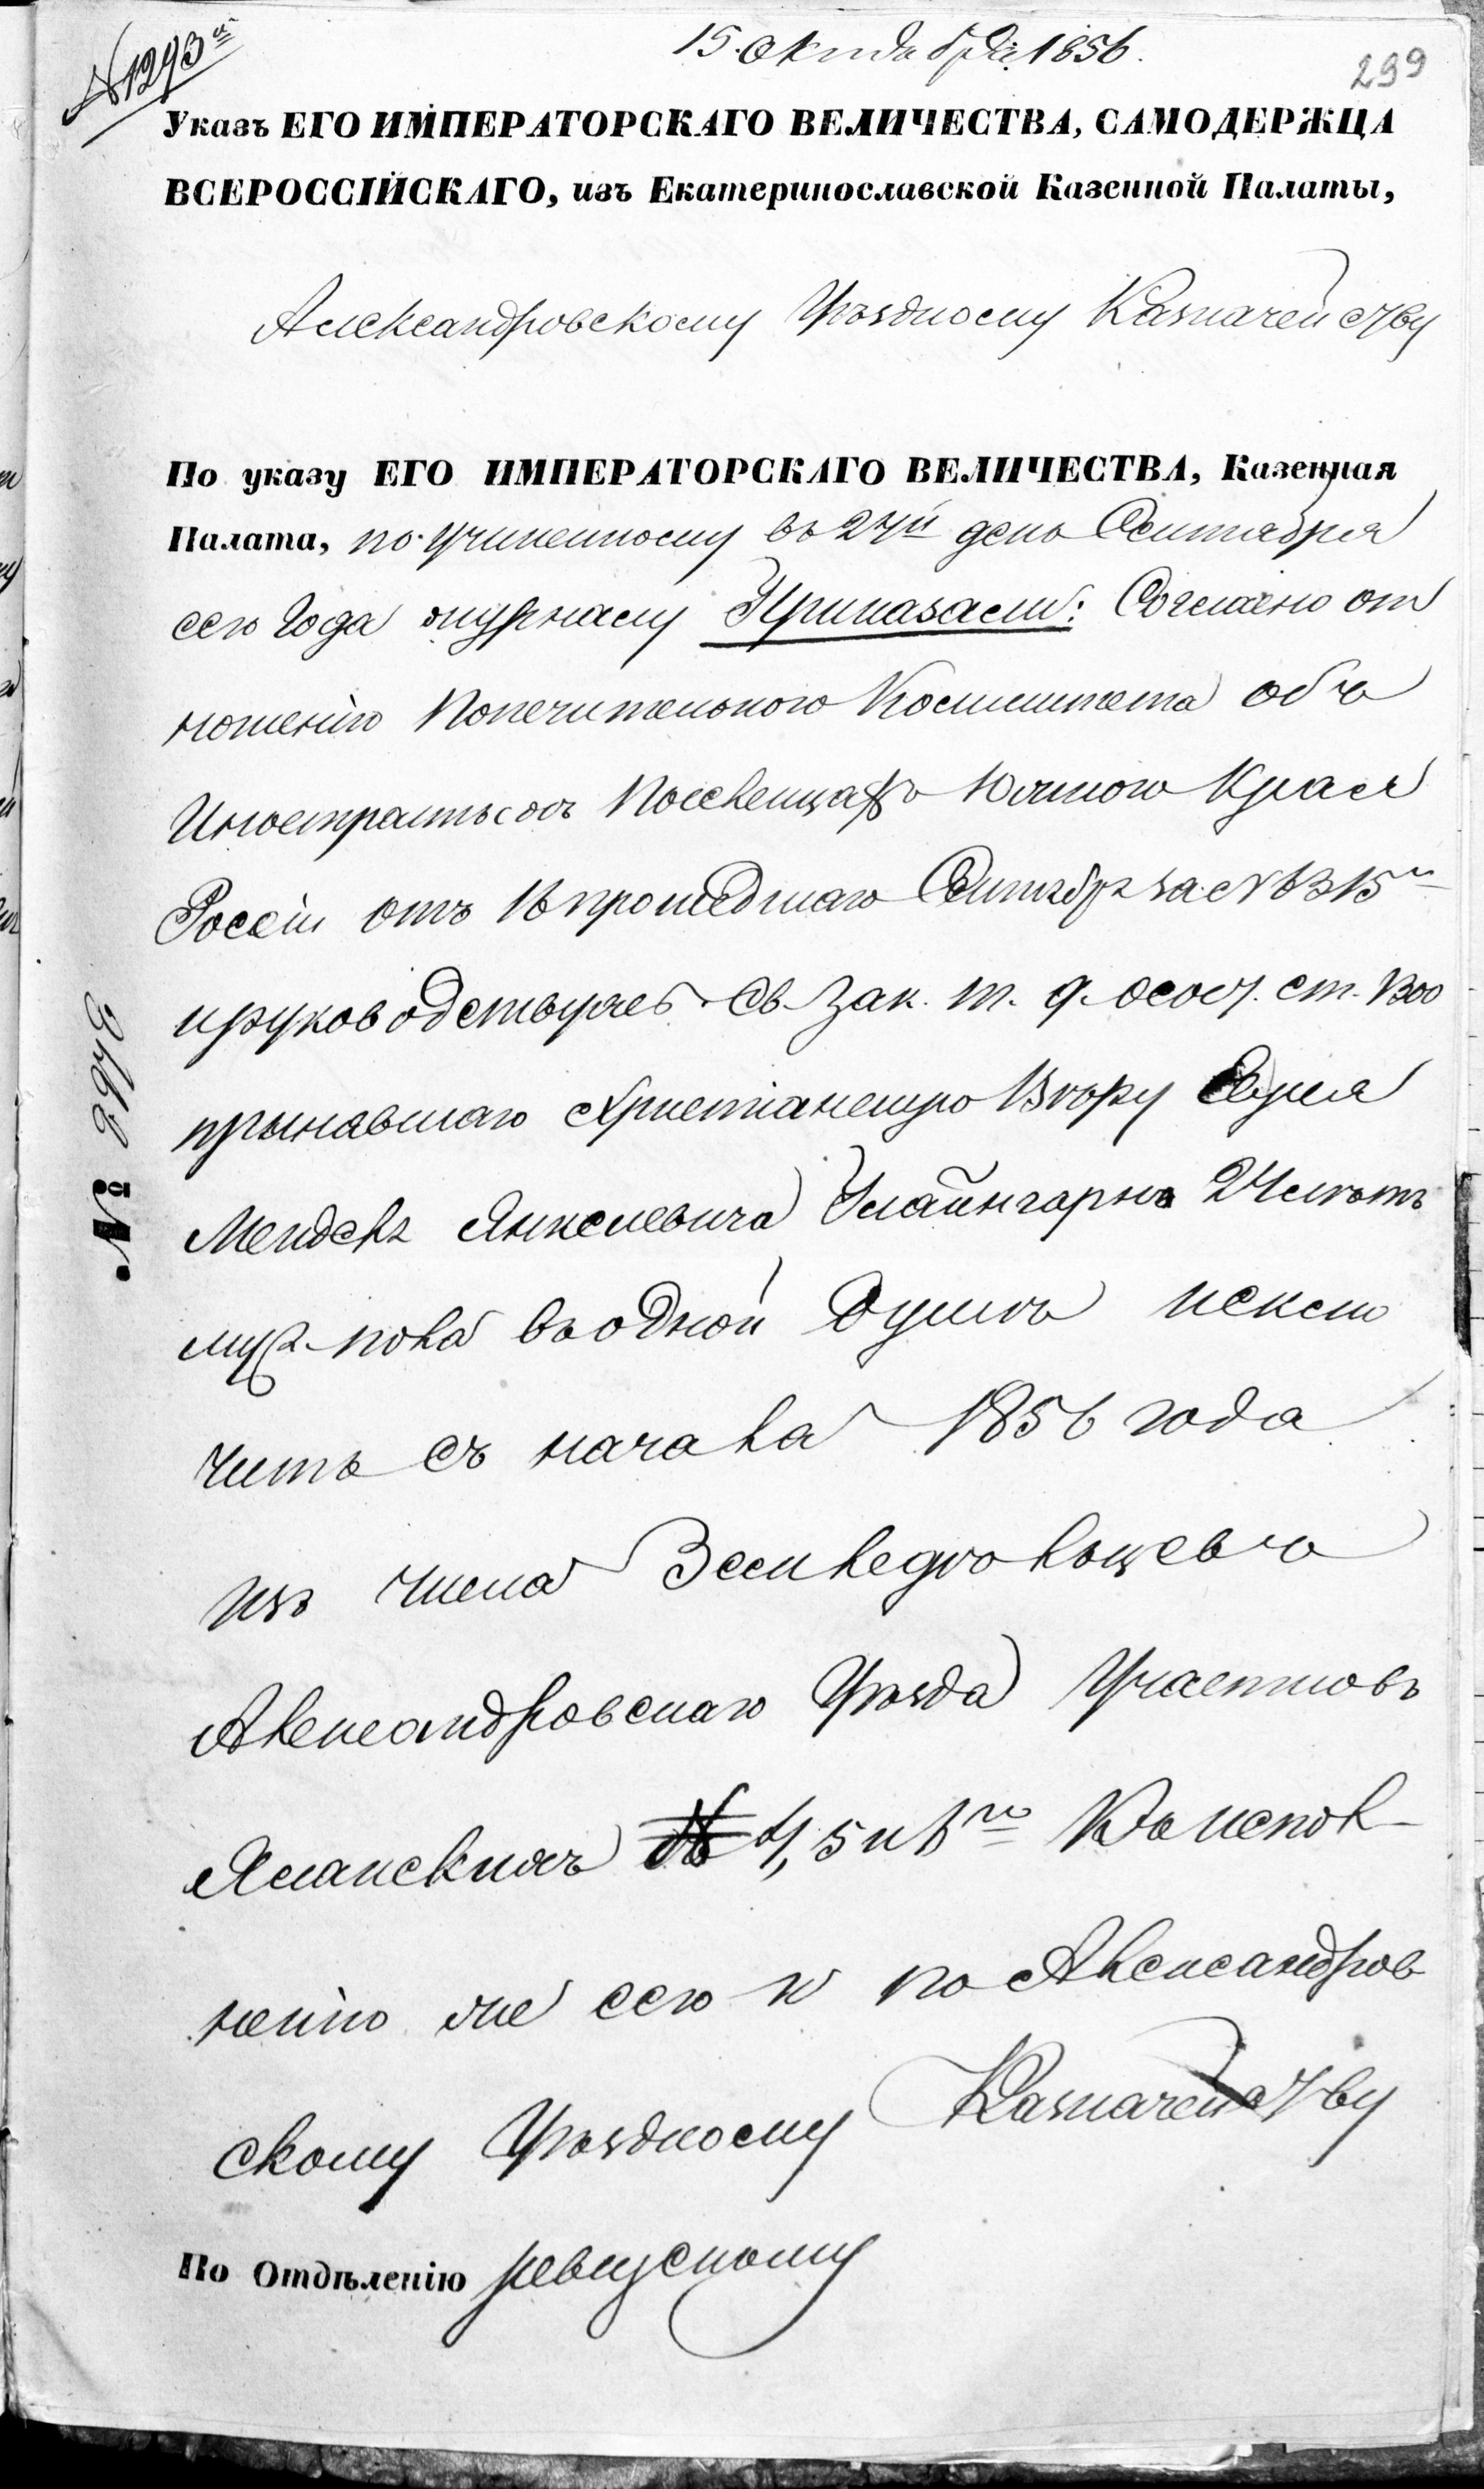 № 1293й
15. октября 1856.
299
Указъ ЕГО ИМПЕРАТОРСКАГО ВЕЛИЧЕСТВА, САМОДЕРЖЦА
ВСЕРОССІЙСКАГО, изъ Екатеринославской Казенной Палаты,
Александровскому Уѣздному Казначейству
По указу ЕГО ИМПЕРАТОРСКАГО ВЕЛИЧЕСТВА, Казенная
Палата, по учиненному въ 24й день Сентября
сего Года журналу Приказали: Согласно от
ношенію Попечительного Комитета объ
Иностранныхъ Поселенцахъ Южного Края
Россіи отъ 16 прошедшаго Сентября за №6315м
и руководствуясь Св. Зак. т. 9. о сост. ст. 1300
принявшаго Христіанскую Вѣру Еврея
Менделя Янкелевича 24 лѣтъ
муж. пола въ одной душѣ исклю
чить съ начала 1856 года
изъ числа Земледѣльцевъ
Александровскаго Уѣзда Участковъ
4, 5 и 6го Къ испол-
ненію же сего и по Александров
скому Уѣздному Казначейству
По Отдѣленію ревизскому
№